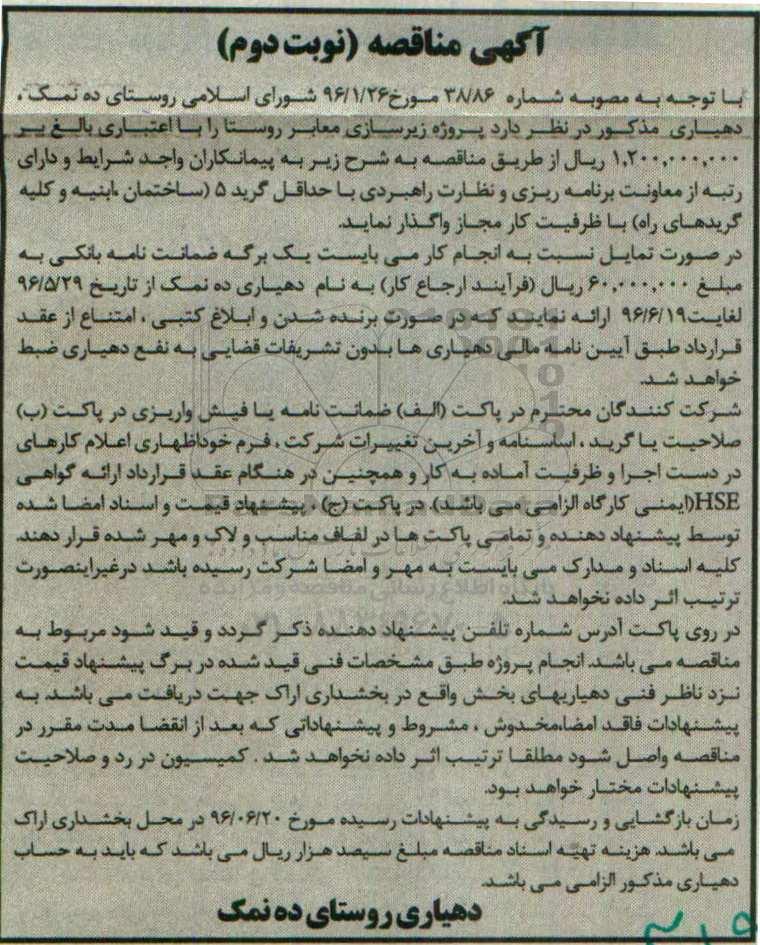 آگهی مناقصه (نوبت دوم)
با توجه به مصوبه شماره ۳۸/۸۶ مورخ۹۶/۱/۲۶ شورای اسلامی روستای ده نمک ،
دهیاری مذکور در نظر دارد پروژه زیرسازی معابر روستا را با اعتباری بالغ بر
۱,۲۰۰,۰۰۰,۰۰۰ ریال از طریق مناقصه به شرح زیر به پیمانکاران واجد شرایط و دارای
رتبه از معاونت برنامه ریزی و نظارت راهبردی با حداقل گرید ۵ (ساختمان ،ابنیه و کلیه
گریدهای راه) با ظرفیت کار مجاز واگذار نماید.
در صورت تمایل نسبت به انجام کار می بایست یک برگه ضمانت نامه بانکی به
مبلغ ۶۰,۰۰۰,۰۰۰ ریال (فرآیند ارجاع کار) به نام دهیاری ده نمک از تاریخ ۹۶/۵/۲۹
لغایت۹۶/۶/۱۹ ارائه نمایند که در صورت برنده شدن و ابلاغ کتبی ، امتناع از عقد
قرارداد طبق آیین نامه مالی دهیاری ها بدون تشریفات قضایی به نفع دهیاری ضبط
خواهد شد.
شرکت کنندگان محترم در پاکت (الف) ضمانت نامه یا فیش واریزی در پاکت (ب)
صلاحیت یا گرید ، اساسنامه و آخرین تغییرات شرکت ، فرم خوداظهاری اعلام کارهای
در دست اجرا و ظرفیت آماده به کار و همچنین در هنگام عقد قرارداد ارائه گواهی
HSE(ایمنی کارگاه الزامی می باشد). در پاکت (ج) ، پیشنهاد قیمت و اسناد امضا شده
توسط پیشنهاد دهنده و تمامی پاکت ها در لفاف مناسب و لاک و مهر شده قرار دهند.
کلیه اسناد و مدارک می بایست به مهر و امضا شرکت رسیده باشد درغیراینصورت
ترتیب اثر داده نخواهد شد.
در روی پاکت آدرس شماره تلفن پیشنهاد دهنده ذکر گردد و قید شود مربوط به
مناقصه می باشد. انجام پروژه طبق مشخصات فنی قید شده در برگ پیشنهاد قیمت
نزد ناظر فنی دهیاریهای بخش واقع در بخشداری اراک جهت دریافت می باشد. به
پیشنهادات فاقد امضا،مخدوش ، مشروط و پیشنهاداتی که بعد از انقضا مدت مقرر در
مناقصه واصل شود مطلقا ترتیب اثر داده نخواهد شد . کمیسیون در رد و صلاحیت
پیشنهادات مختار خواهد بود.
زمان بازگشایی و رسیدگی به پیشنهادات رسیده مورخ ۹۶/۰۶/۲۰ در محل بخشداری اراک
می باشد. هزینه تهیه اسناد مناقصه مبلغ سیصد هزار ریال می باشد که باید به حساب
دهیاری مذکور الزامی می باشد.
دهیاری روستای ده نمک